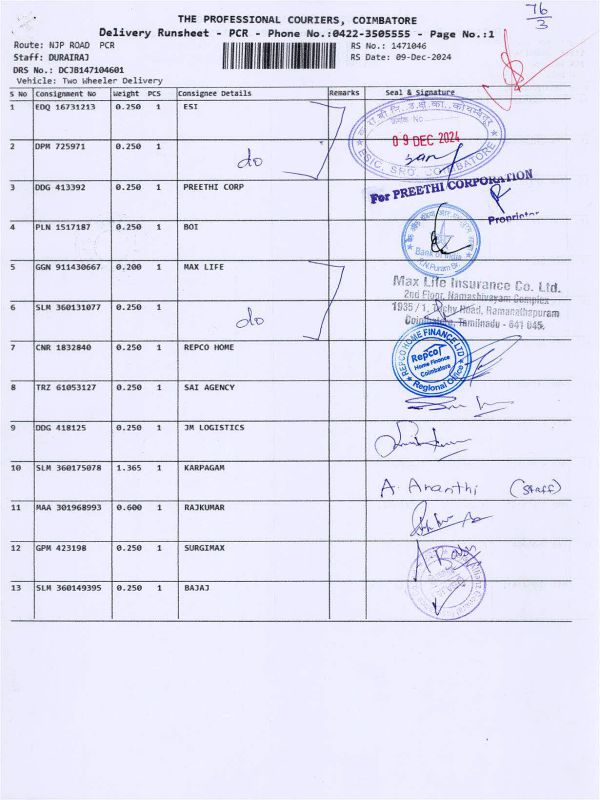 76
3
THE PROFESSIONAL COURIERS, COIMBATORE
Delivery Runsheet - PCR - Phone No.:0422-3505555 - Page No.:1
Route: NJP ROAD PCR
RS No.: 1471046
Staff: DURAIRAJ
RS Date: 09-Dec-2024
DRS No.: DCJB147104601
Vehicle: Two Wheeler Delivery
S No Consignment No Weight PCS Consignee Details Remarks Seal & Signature
1 EDQ 16731213 0.250 1 ESI
09 DEC 2024
ESIC, SRO, COIMBATORE
2 DPM 725971 0.250 1 do
3 DDG 413392 0.250 1 PREETHI CORP
For PREETHI CORPORATION
Proprietor
4 PLN 1517187 0.250 1 BOI
Bank of India
5 GGN 911430667 0.200 1 MAX LIFE
Max Life Insurance Co. Ltd.
2nd Floor, Namashivayam Complex
1935 / 1, Trichy Road, Ramanathapuram
Coimbatore, Tamilnadu - 641 045.
6 SLM 360131077 0.250 1 do
7 CNR 1832840 0.250 1 REPCO HOME
REPCO HOME FINANCE LTD
Repco
Home Finance
Coimbatore
Regional Office
8 TRZ 61053127 0.250 1 SAI AGENCY
9 DDG 418125 0.250 1 JM LOGISTICS
10 SLM 360175078 1.365 1 KARPAGAM
A. Ananthi (Staff)
11 MAA 301968993 0.600 1 RAJKUMAR
12 GPM 423198 0.250 1 SURGIMAX
13 SLM 360149395 0.250 1 BAJAJ